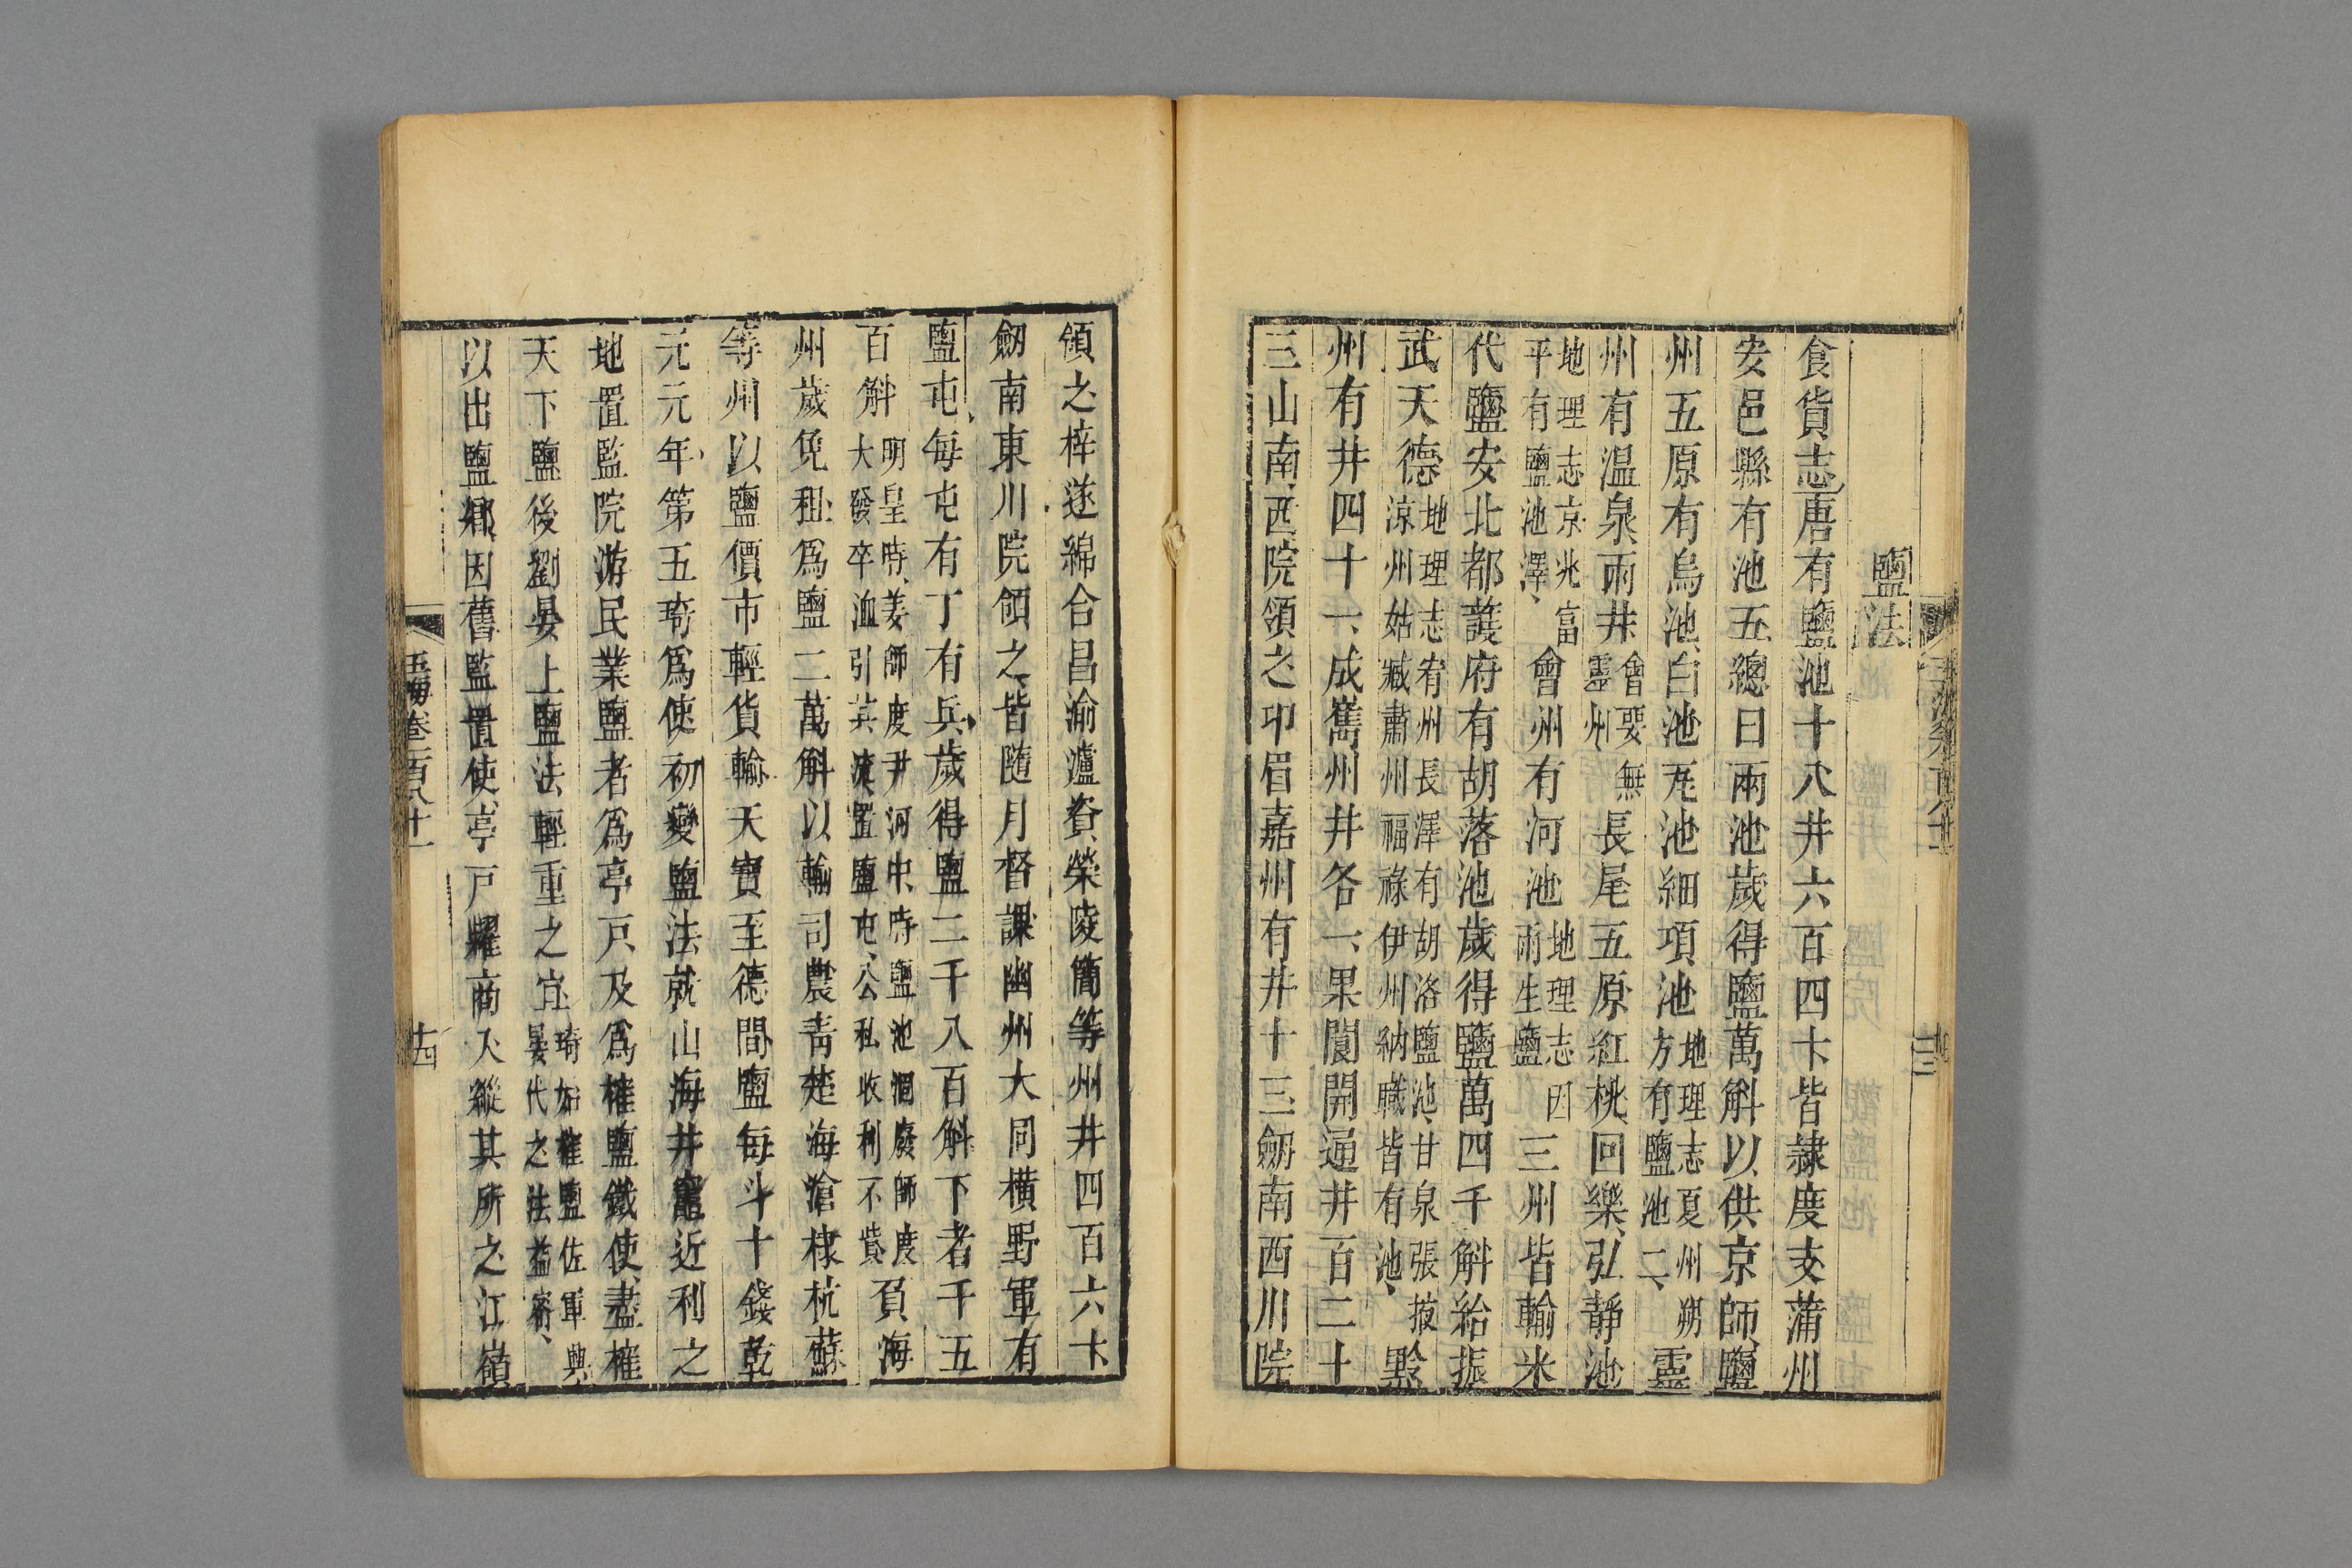 鹽法
食貨志唐有鹽池十八井六百四十皆隸度支蒲州
安邑縣有池五總曰兩池歲得鹽萬斛以供京師鹽
州五原有烏池白池瓦池細項池地理志夏州朔方有鹽池二靈
州有温泉兩井會要無靈州長尾五原紅桃回樂弘靜池
地理志京兆富平有鹽池澤會州有河池地理志因雨生鹽三州皆輸米
代鹽安北都護府有胡落池歲得鹽萬四千斛給振
武天德地理志宥州長澤有胡洛鹽池甘泉張掖涼州姑臧肅州福祿伊州納職皆有池黔
州有井四十一成巂州井各一果閬開通井百二十
三山南西院領之卭眉嘉州有井十三劒南西川院
領之梓遂綿合昌渝瀘資榮陵簡等州井四百六十
劒南東川院領之皆隨月督課幽州大同橫野軍有
鹽屯每屯有丁有兵歲得鹽二千八百斛下者千五
百斛明皇時姜師度尹河中時鹽池涸廢師度大發卒洫引其流置鹽屯公私收利不貲負海
州歲免租爲鹽二萬斛以輸司農青楚海滄棣杭蘇
等州以鹽價市輕貨輸天寶至德間鹽每斗十錢乾
元元年第五琦爲使初變鹽法就山海井竈近利之
地置監院游民業鹽者爲亭戸及爲榷鹽鐵使盡榷
天下鹽後劉晏上鹽法輕重之宜琦始榷鹽佐軍興晏代之法益密
以出鹽鄉因舊監置使亭戸糶商人縱其所之江嶺
玉海卷一百八十一
十四